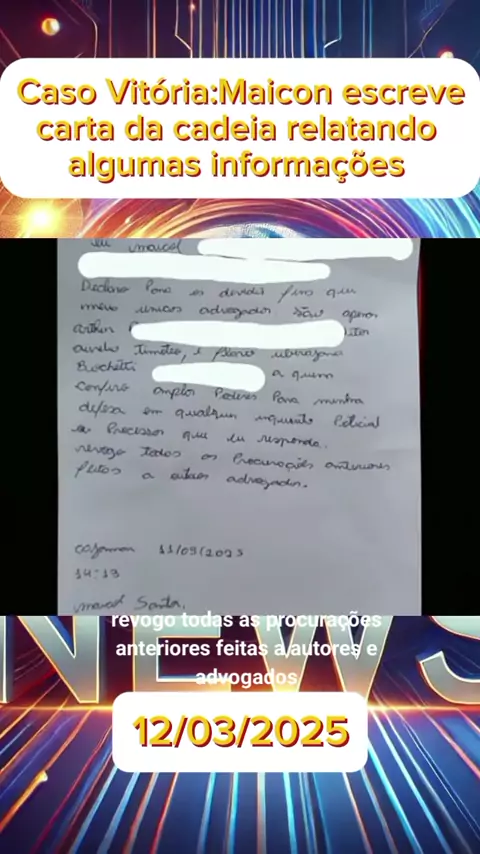 Caso Vitória:Maicon escreve
carta da cadeia relatando
algumas informações
eu maicol
Declaro Para os devidos fins que
meus unicos advogados são apenas
arthur
aurelio timoteo, e flavio ubirajara
a quem
confiro amplos Poderes Para minha
defesa em qualquer inquerito Policial
e Processos que eu responda.
revogo todas as Procurações anteriores
feitas a outros advogados.
cajamar 11/03/2025
14:13
maicol Santos.
NEWS
revogo todas as procurações
anteriores feitas a/autores e
advogados
12/03/2025